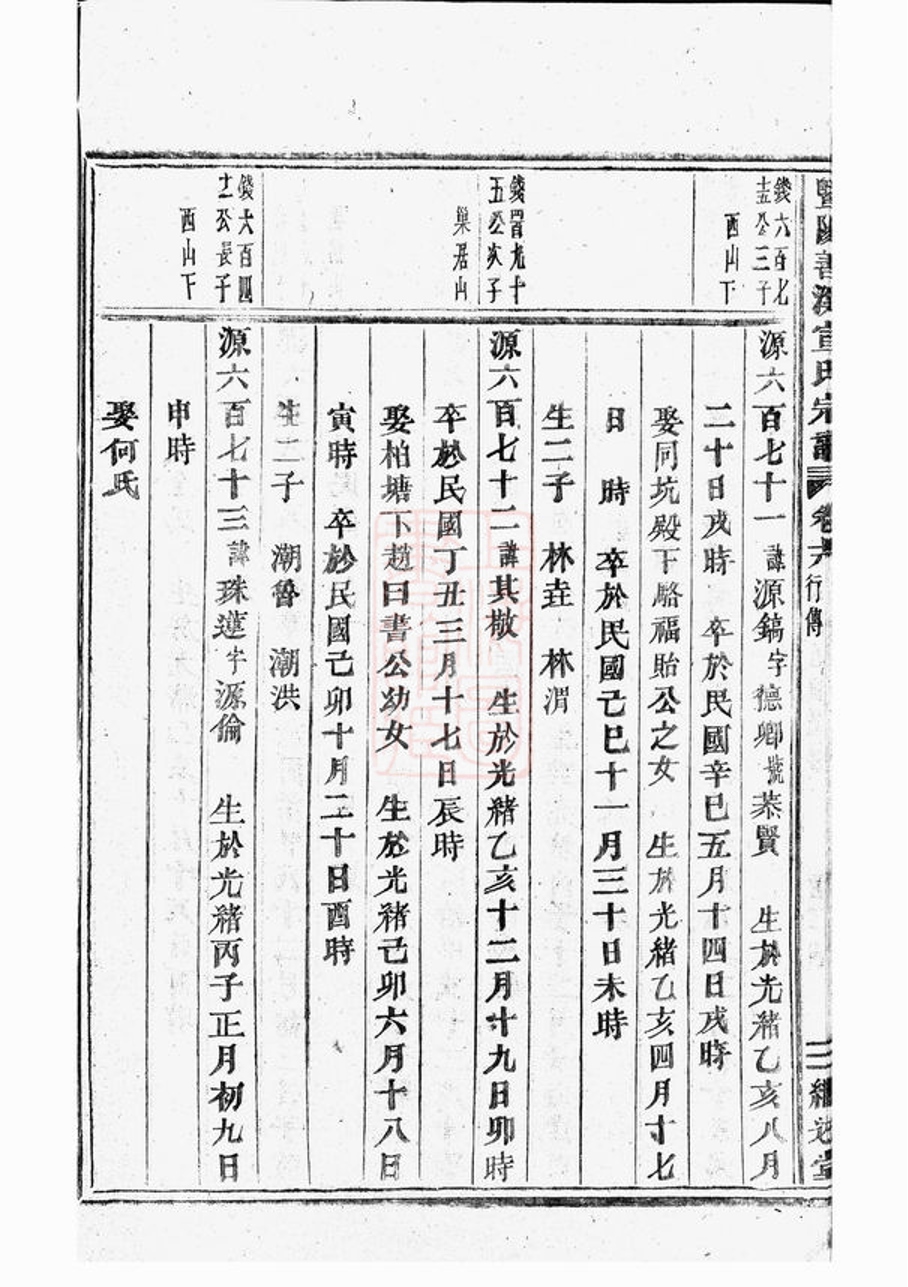 暨陽善溪宣氏宗譜 卷六 行傳 三 繼述堂
錢六百七
十五公三子
西山下
源六百七十一 諱源鎬字德卿號恭賢 生於光緒乙亥八月
二十日戌時 卒於民國辛巳五月十四日戌時
娶同坑殿下駱福貽公之女 生於光緒乙亥四月十七
日 時 卒於民國己巳十一月三十日未時
生二子 林垚 林渭
錢四百九十
五公次子
巢居山
源六百七十二 諱其檄 生於光緒乙亥十二月十九日卯時
卒於民國丁丑三月十七日辰時
娶柏塘下趙曰書公幼女 生於光緒己卯六月十八日
寅時 卒於民國己卯十月二十日酉時
生二子 潮魯 潮洪
錢六百四
十一公長子
西山下
源六百七十三 諱珠蓮字源倫 生於光緒丙子正月初九日
申時
娶何氏